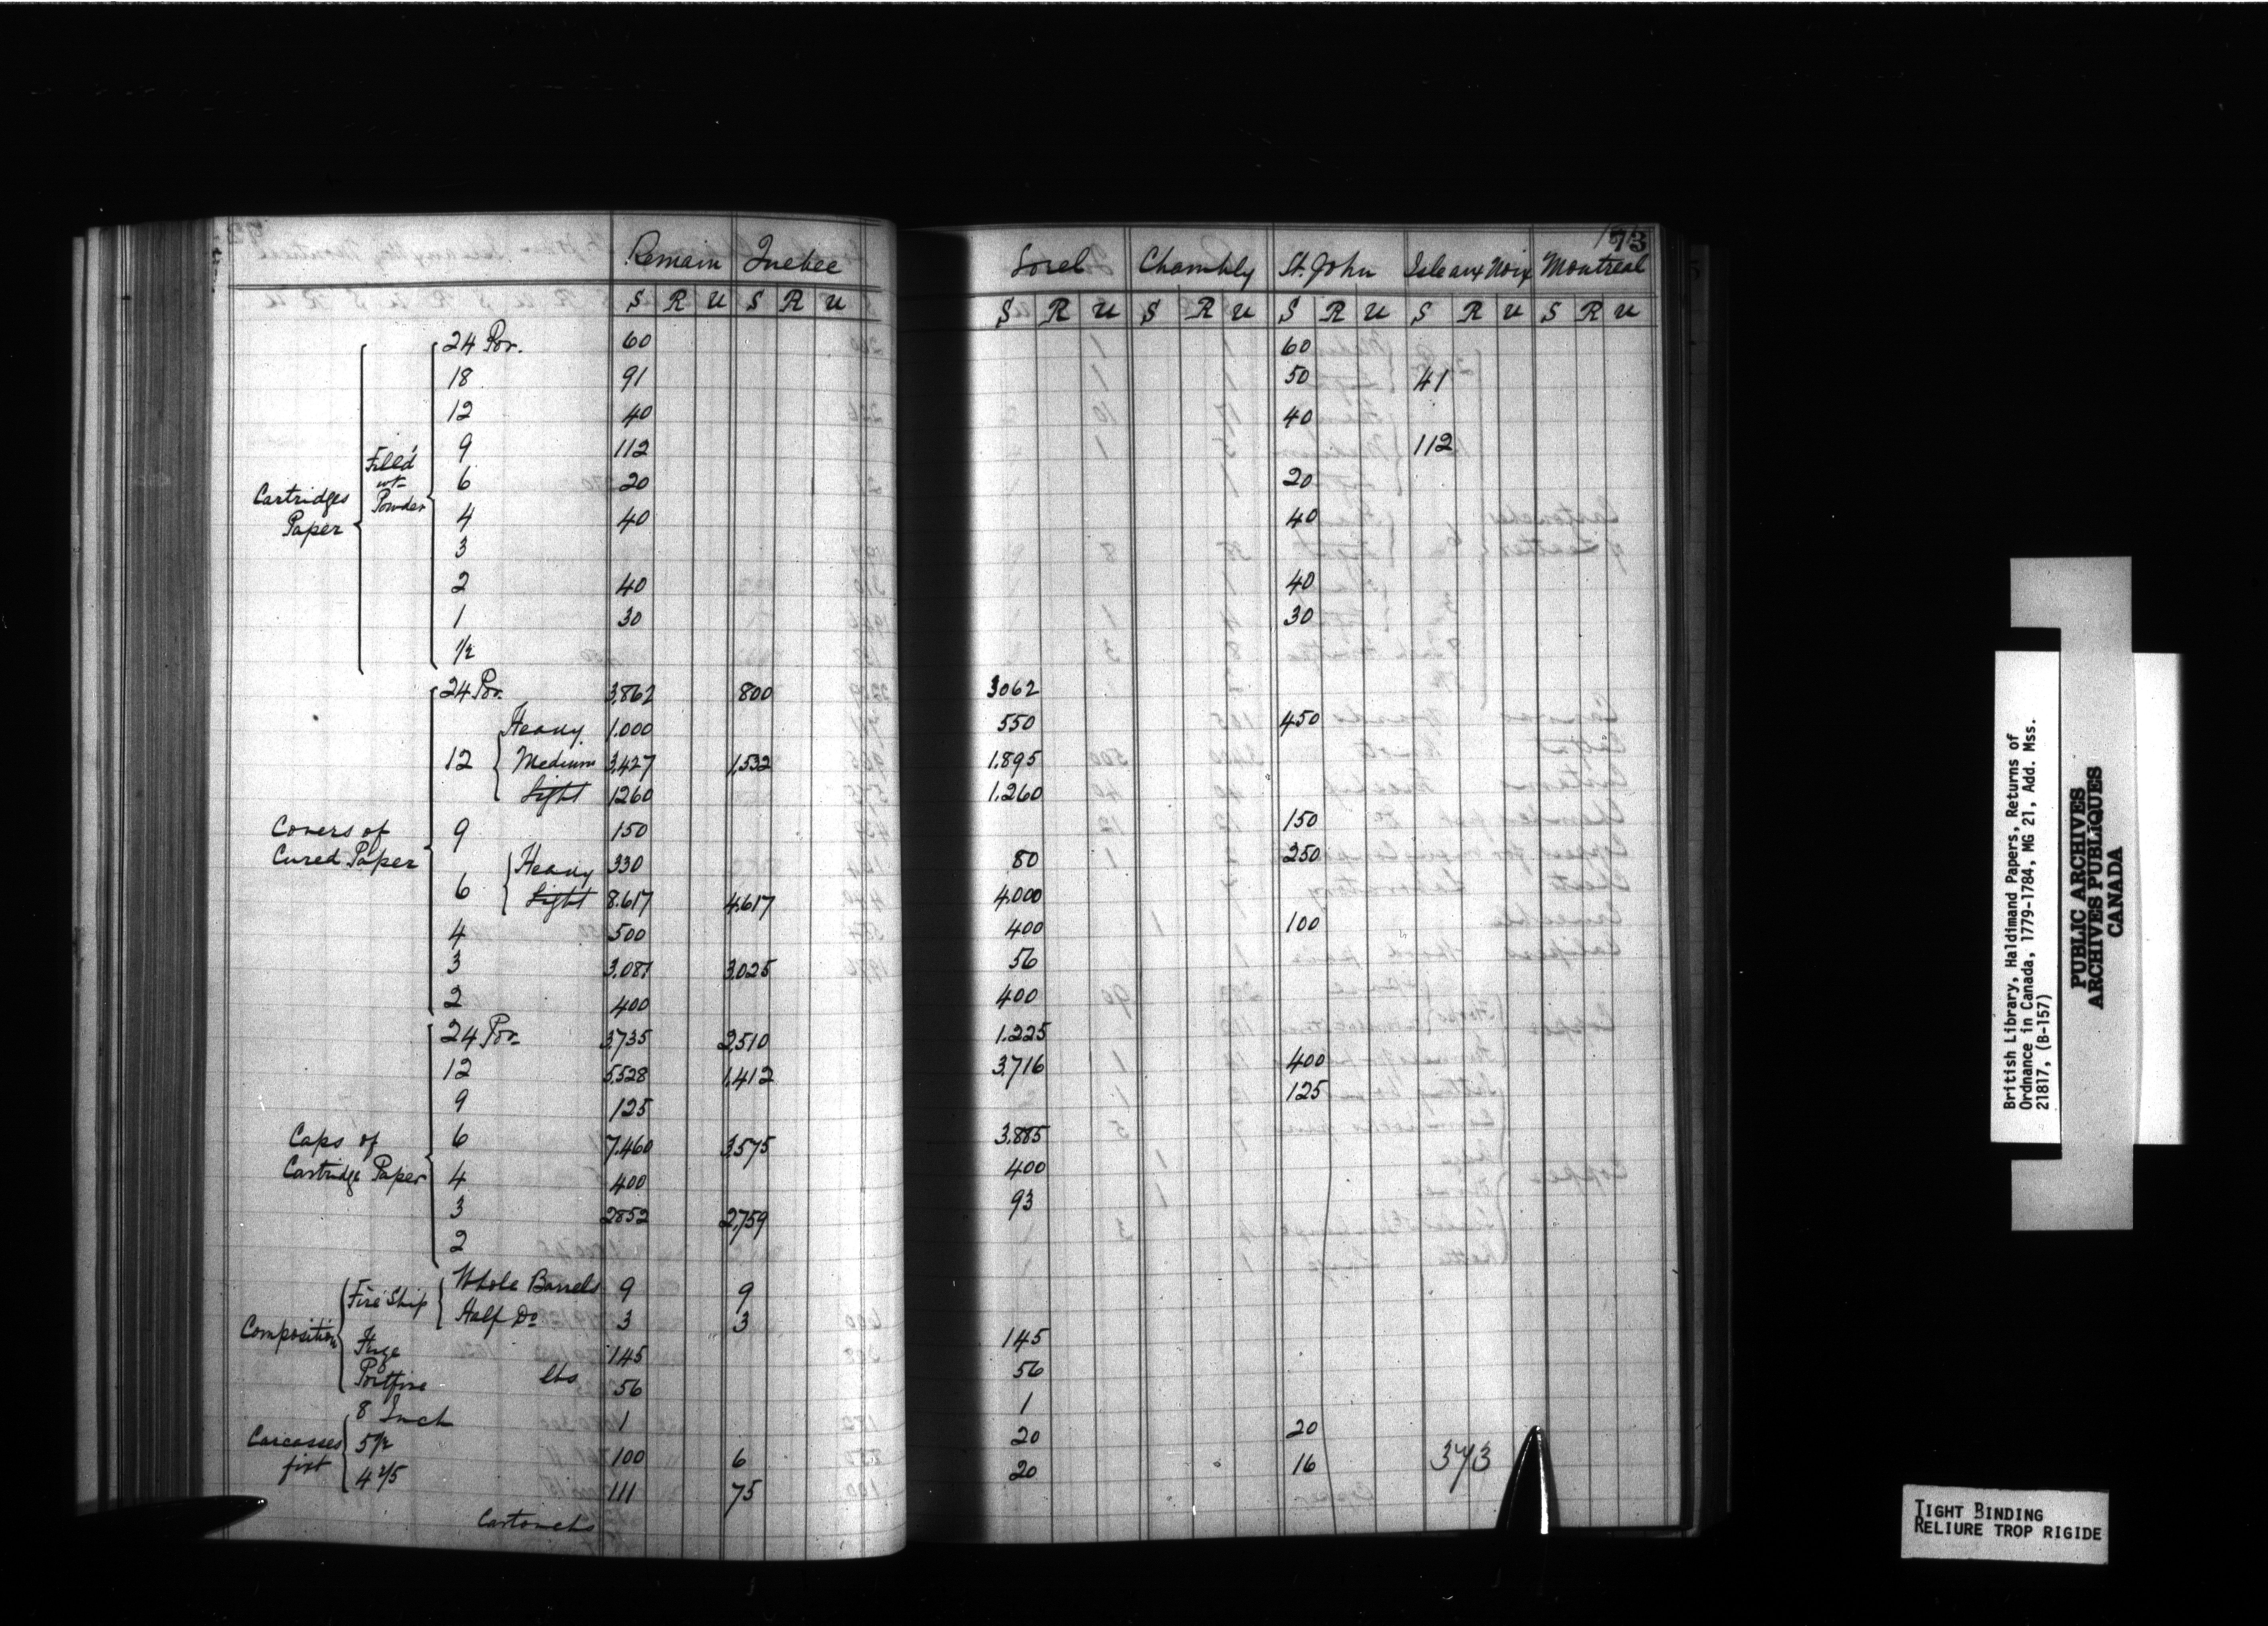 73
Remain Quebec Sorel Chambly St. John Isle aux Noix Montreal
S R U S R U S R U S R U S R U S R U S R U
Cartridges Paper Filled wt Powder
24 Por. 60 60
18 91 50 41
12 40 40
9 112 112
6 20 20
4 40 40
3
2 40 40
1 30 30
1/2
Covers of Cured Paper
24 Por. 3,862 800 3062
12 Heavy 1.000 550 450
Medium 3,427 1,532 1.895
Light 1260 1.260
9 150 150
6 Heavy 330 80 250
Light 8.617 4.617 4.000
4 500 400 100
3 3,081 3,025 56
2 400 400
Caps of Cartridge Paper
24 Por. 3,735 2,510 1.225
12 5,528 1,412 3,716 400
9 125 125
6 7.460 3,575 3.885
4 400 400
3 2852 2,759 93
2
Composition
Fire Ship Whole Barrels 9 9
Half Do 3 3
Fuze 145 145
Portfire lbs 56 56
Carcasses fixt
8 Inch 1 1
5 1/2 100 6 20 20
4 2/5 111 75 20 16
373
Cartouchs
British Library, Haldimand Papers, Returns of
Ordnance in Canada, 1779-1784, MG 21, Add. Mss.
21817, (B-157)
PUBLIC ARCHIVES
ARCHIVES PUBLIQUES
CANADA
TIGHT BINDING
RELIURE TROP RIGIDE